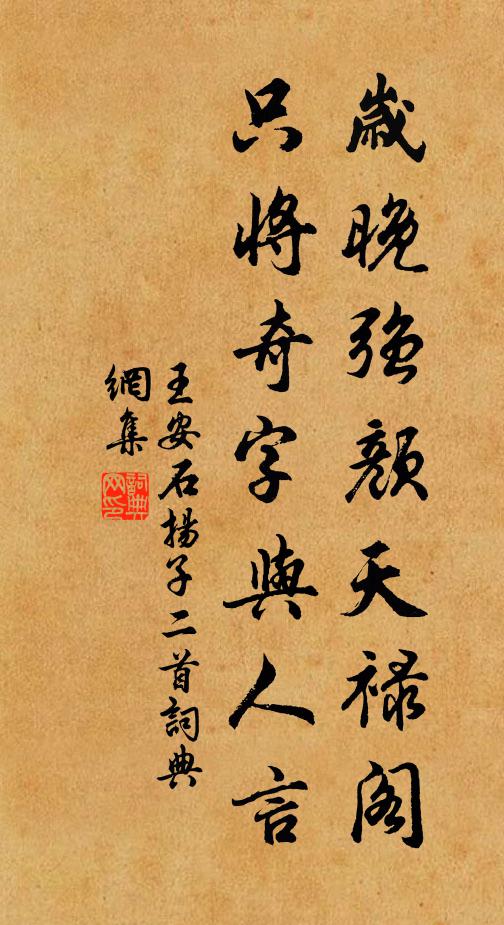 歲晚強顏天祿閣
只將奇字與人言
王安石揚子二首詞典
網集
詞典
网印